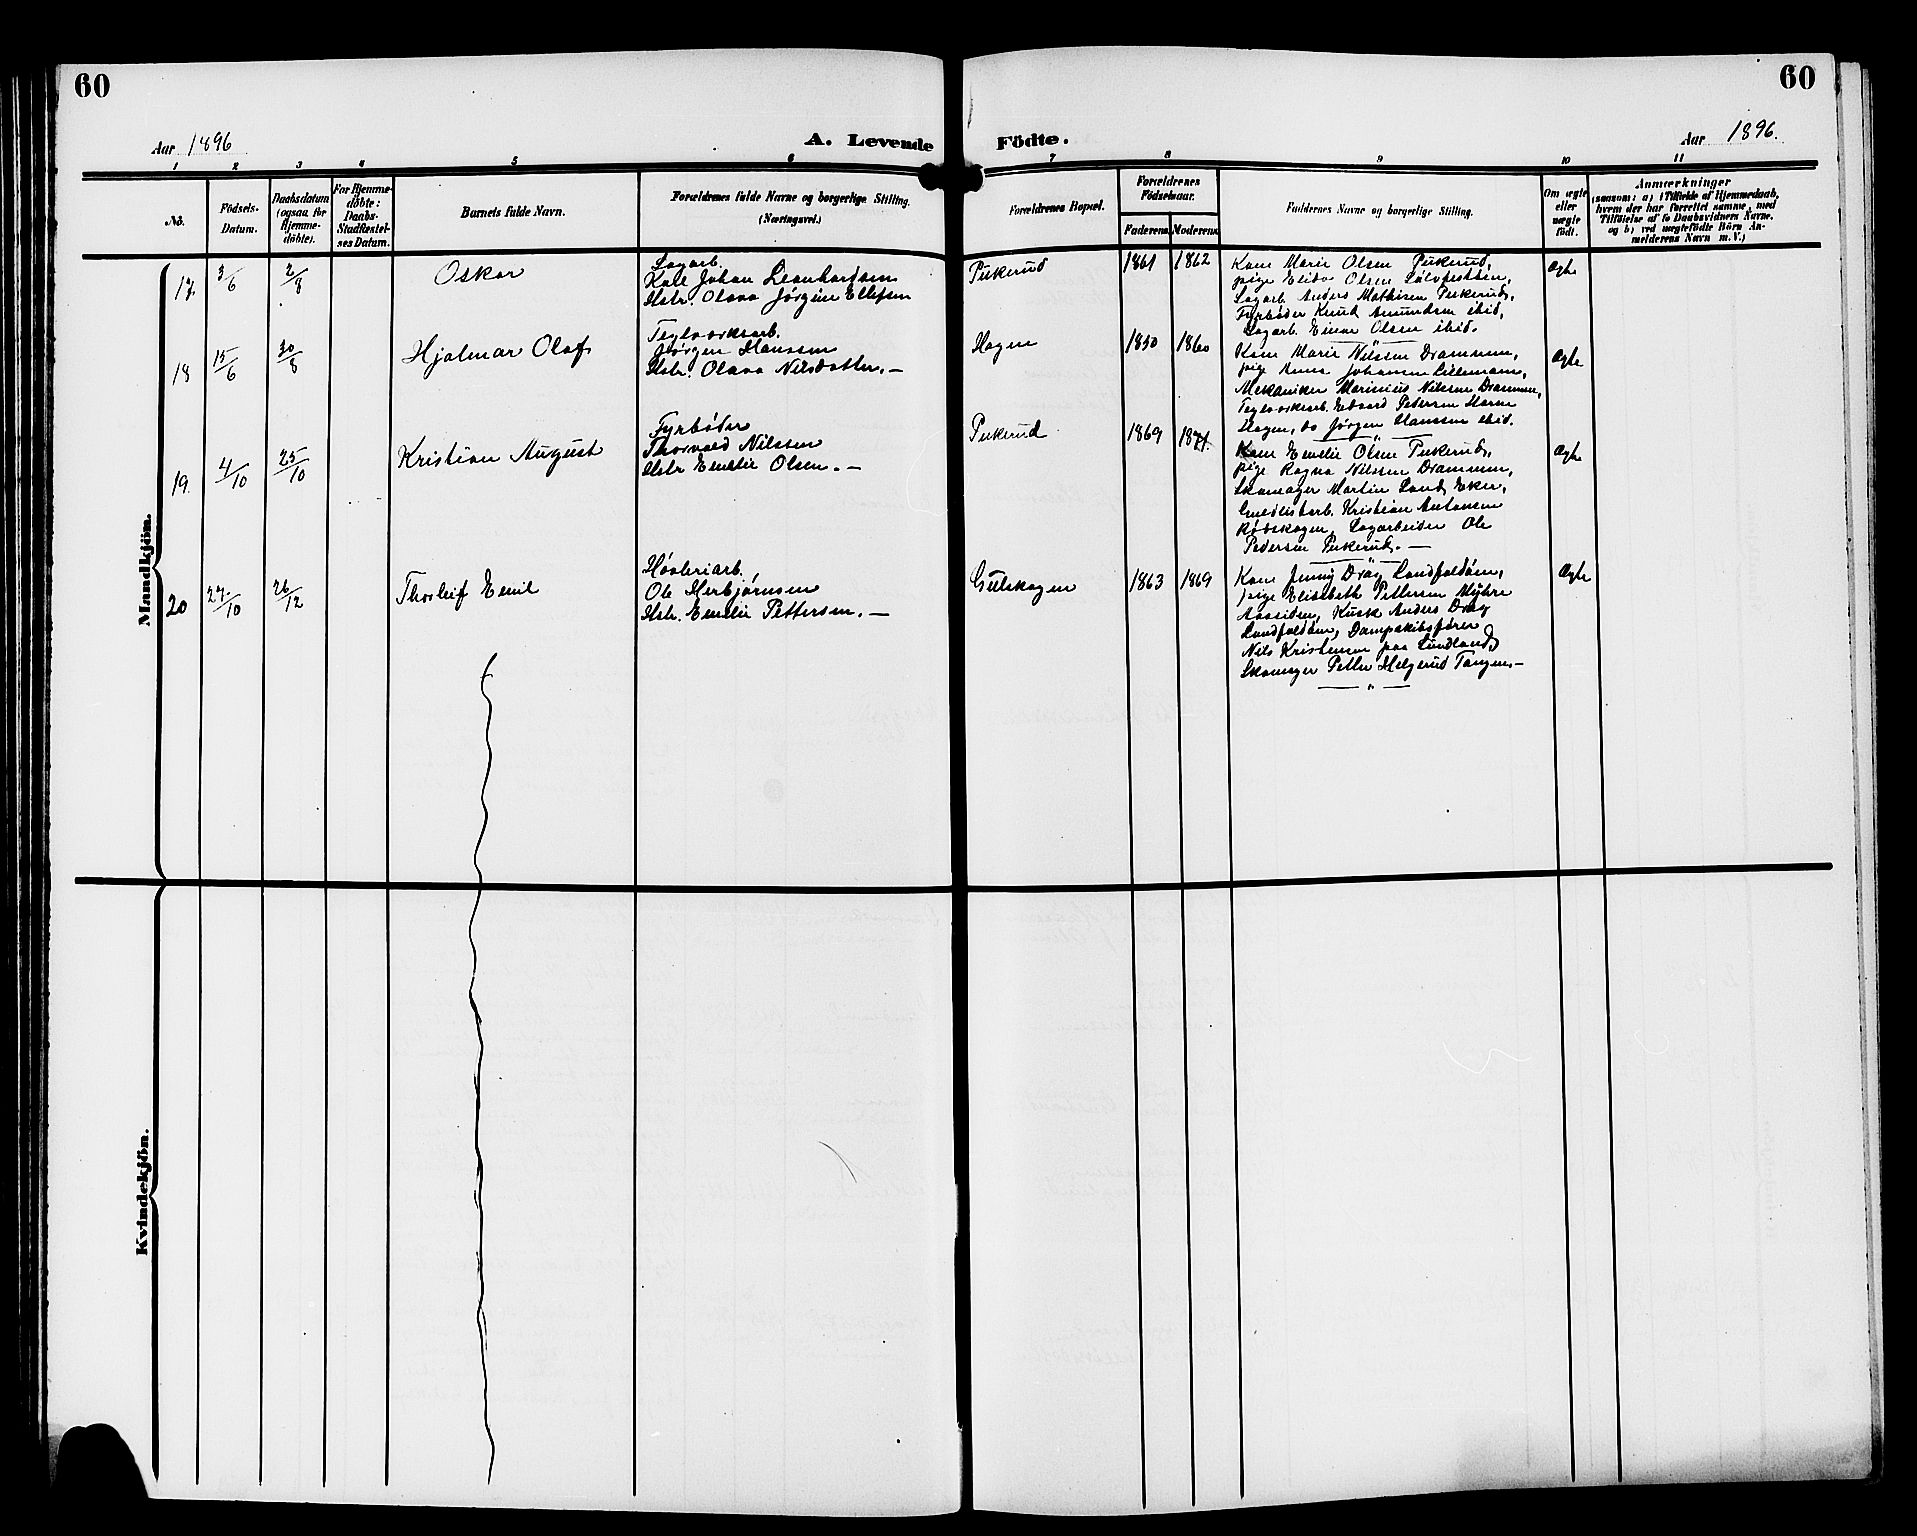 60
60
Aar 1896
A. Levende Födte.
Aar 1896.
1 2 3 4 5 6 7 8 9 10 11
No.
Födsels-
Datum.
Daabsdatum
(ogsaa for
Hjemme-
döbte).
For Hjemme-
döbte:
Daabs-
Stadfæstel-
ses Datum.
Barnets fulde Navn.
Forældrenes fulde Navne og borgerlige Stilling.
(Næringsvei.)
Forældrenes Bopæl.
Forældrenes
Födselsaar.
Faderens. Moderens.
Faddernes Navne og borgerlige Stilling.
Om ægte
eller
uægte
födt.
Anmærkninger
(saasom: a) i Tilfælde af Hjemmedaab,
hvem der har forrettet samme, med
Tilföielse af to Daabsvidners Navne.
og b) ved uægtefödte Börn An-
melderens Navn m. V.)
Mandkjön.
17. 3/6 2/8 Oskar
Sagarb.
Karl Johan Leonhardsen
Hstr. Olava Jørgine Ellefsen
Pukerud 1861 1862
Kone Marie Olsen Pukerud,
pige Elida Olsen Sølvfesttin,
Sagarb. Anders Mathisen Pukerud,
Fyrbøder Knud Amundsen ibid,
Sagarb. Einar Olsen ibid.
Ægte
18 15/6 30/8 Hjalmar Olaf
Teglverksarb.
Jørgen Hanssen
Hstr. Olava Nilsdatter. —
Hagen 1850 1860
Kone Marie Nilssen Drammen,
pige Anna Johanne Lillemann,
Mekaniker Marinius Nilssen Drammen,
Teglverksarb. Edvard Petersen Horne
Hagen, do Jørgen Hanssen ibid.
Ægte
19. 4/10 25/10 Kristian August
Fyrbøder
Thorvald Nilssen
Hstr Emelie Olsen. —
Pukerud 1869 1871.
Kone Emelie Olsen Pukerud,
pige Ragna Nilssen Drammen,
Skomager Martin Land, Eker,
Gmedlistarb. Kristian Antonsen
Rødskogen, Sagarbeider Ole
Pedersen Pukerud. —
Ægte
20 27/10 26/12 Thorleif Emil
Høvleriarb.,
Ole Herbjørnsen
Hstr. Emelie Pettersen. —
Gulskogen 1863 1869
Kone Jenny Drag Landfaldøen,
pige Elisabeth Pettersen Myhre
Aassiden, Kusk Anders Drag
Landfaldøen, Dampskibsfører
Nils Kristensen paa Lundland,
Skomager Petter Helgerud Tangen. —
Ægte
Kvindekjön.